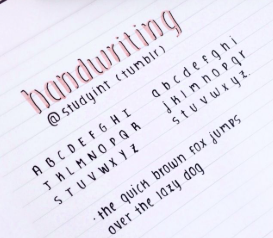 handwriting
@studyint (tumblr)
A B C D E F G H I
J K L M N O P Q R
S T U V W X Y Z
a b c d e f g h i
j k l m n o p q r
s t u v w x y z
· the quick brown fox jumps
over the lazy dog